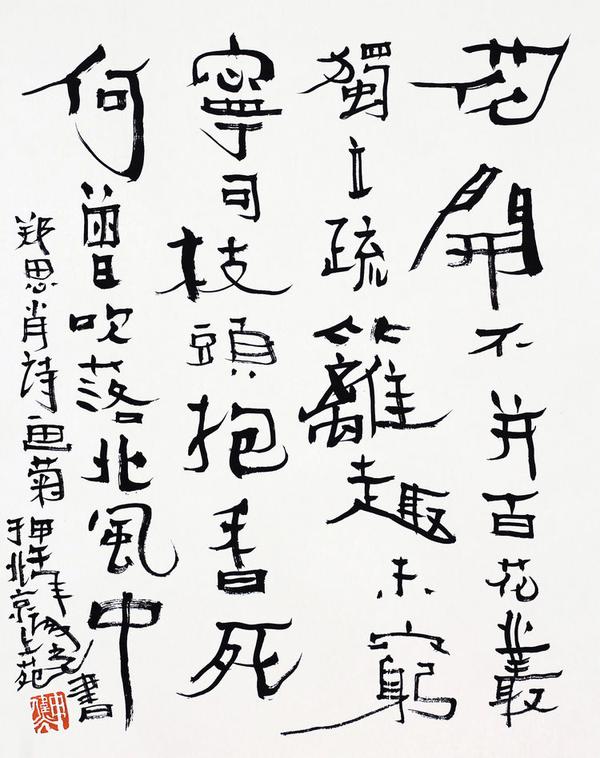 花開不并百花叢
獨立疏籬趣未窮
寧可枝頭抱香死
何曾吹落北風中
郑思肖詩画菊
甲午年 書
于北京上苑